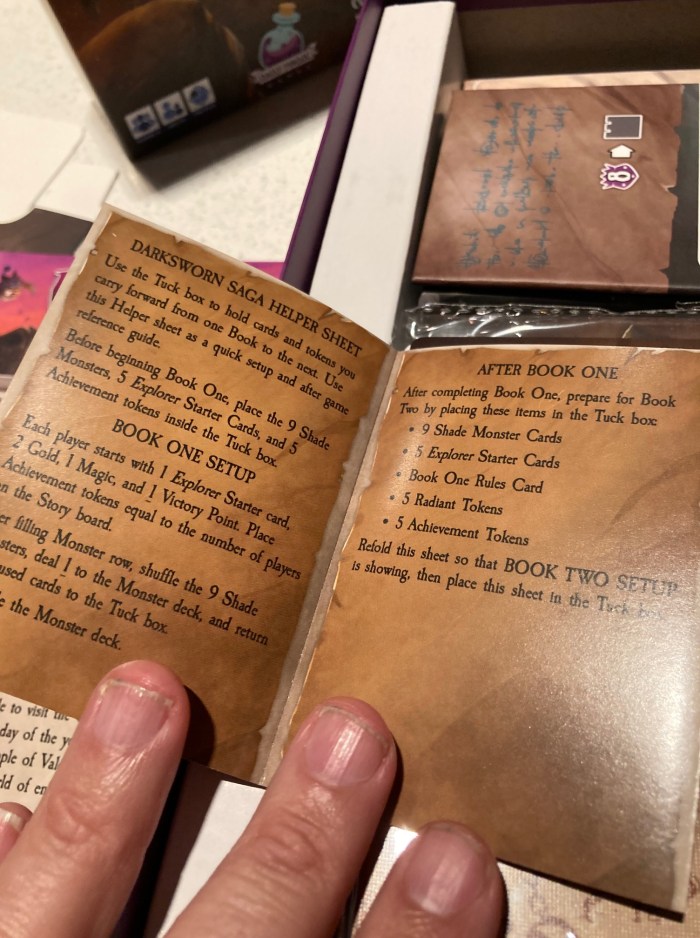 DARKSWORN SAGA HELPER SHEET
Use the Tuck box to hold cards and tokens you
carry forward from one Book to the next. Use
this Helper sheet as a quick setup and after game
reference guide.
Before beginning Book One, place the 9 Shade
Monsters, 5 Explorer Starter Cards, and 5
Achievement tokens inside the Tuck box.
BOOK ONE SETUP
Each player starts with 1 Explorer Starter card,
2 Gold, 1 Magic, and 1 Victory Point. Place
Achievement tokens equal to the number of players
the Story board.
filling Monster row, shuffle the 9 Shade
deal 1 to the Monster deck, and return
cards to the Tuck box.
the Monster deck.
AFTER BOOK ONE
After completing Book One, prepare for Book
Two by placing these items in the Tuck box:
• 9 Shade Monster Cards
• 5 Explorer Starter Cards
• Book One Rules Card
• 5 Radiant Tokens
• 5 Achievement Tokens
Refold this sheet so that BOOK TWO SETUP
is showing, then place this sheet in the Tuck
8
to visit
day of the
of
of